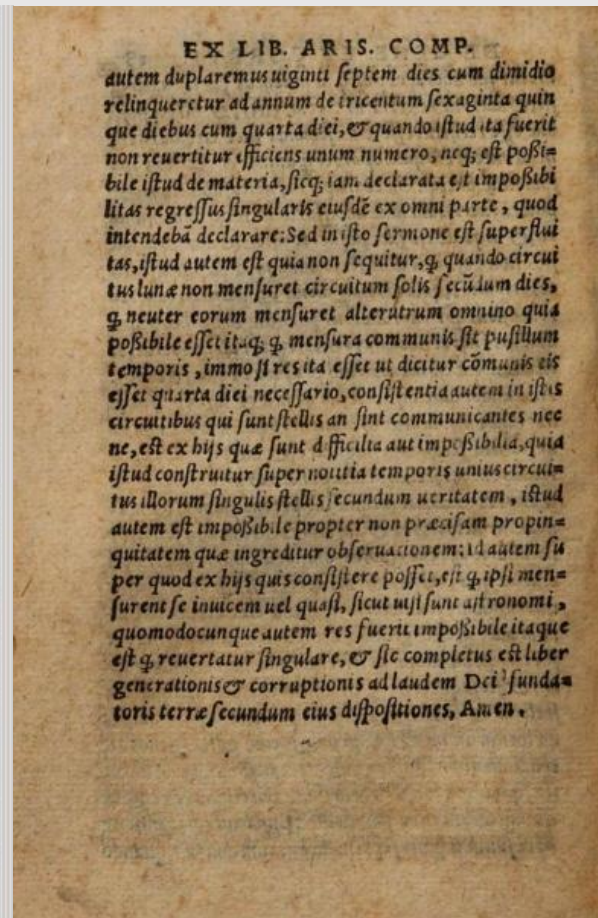 EX LIB. ARIS. COMP.
autem duplaremus uiginti septem dies cum dimidio
relinqueretur ad annum de tricentum sexaginta quin
que diebus cum quarta diei, & quando istud ita fuerit
non reuertitur efficiens unum numero, neq; est poßi=
bile istud de materia, sicq; iam declarata est impoßibi
litas regressus singularis eiusdē ex omni parte, quod
intendebā declarare: Sed in isto sermone est superflui
tas, istud autem est quia non sequitur, q, quando circui
tus lunæ non mensuret circuitum solis secūdum dies,
q, neuter eorum mensuret alterutrum omnino quia
poßibile esset itaq; q, mensura communis sit pusillum
temporis, immo si res ita esset ut dicitur cōmunis eis
esset quarta diei necessario, consistentia autem in istis
circuitibus qui sunt stellis an sint communicantes nec
ne, est ex hijs quæ sunt difficilia aut impoßibilia, quia
istud construitur super notitia temporis unius circui=
tus illorum singulis stellis secundum ueritatem, istud
autem est impoßibile propter non præcisam propin=
quitatem quæ ingreditur obseruationem: id autem su
per quod ex hijs quis consistere posset, est q, ipsi men=
surent se inuicem uel quasi, sicut uisi sunt astronomi,
quomodocunque autem res fuerit impoßibile itaque
est q, reuertatur singulare, & sic completus est liber
generationis & corruptionis ad laudem Dei funda=
toris terræ secundum eius dispositiones, Amen.